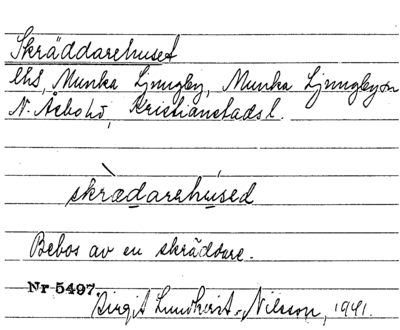 Skräddarehuset
lhs, Munka Ljungby, Munka Ljungby sn
N. Åsbo hd, Kristianstads l.
skrædarehùsed
Bebos av en skräddare.
Nr 5497.
Birgit Lundkvist-Nilsson, 1941.